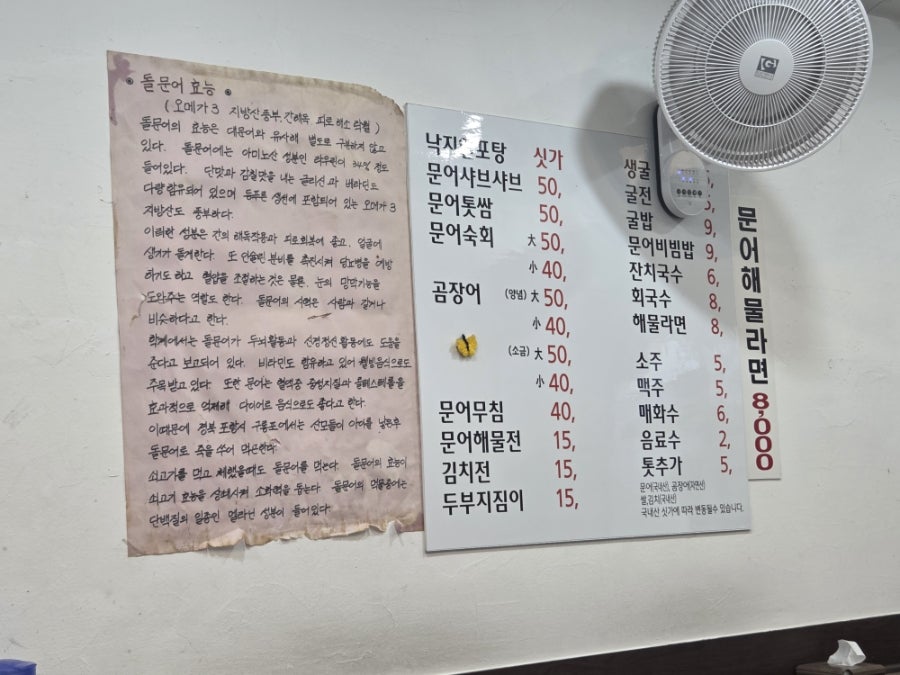 돌문어 효능
( 오메가 3 지방산 풍부, 간해독, 피로 해소 탁월 )
돌문어의 효능은 대문어와 유사해 별도로 구분하지 않고
있다. 돌문어에는 아미노산 성분인 타우린이 34% 정도
들어있다. 단맛과 감칠맛을 내는 글리신과 베타인도
다량 함유되어 있으며 등푸른 생선에 포함되어 있는 오메가 3
지방산도 풍부하다.
이러한 성분은 간의 해독작용과 피로회복에 좋고, 얼굴에
생기가 돌게한다. 또 인슐린 분비를 촉진시켜 당뇨병을 예방
하기도 하고 혈압을 조절하는 것은 물론, 눈의 망막기능을
도와주는 역할도 한다. 돌문어의 시력은 사람과 같거나
비슷하다고 한다.
학계에서는 돌문어가 두뇌활동과 신경정신 활동에도 도움을
준다고 보고되어 있다. 비타민도 함유하고 있어 웰빙음식으로도
주목받고 있다. 또한 문어는 혈액중 중성지질과 콜레스테롤을
효과적으로 억제해 다이어트 음식으로도 좋다고 한다.
이때문에 경북 포항시 구룡포에서는 산모들이 아이를 낳은후
돌문어로 죽을 쑤어 먹는한다.
쇠고기를 먹고 체했을때도 돌문어를 먹는다. 돌문어의 효능이
쇠고기 효능을 상쇄시켜 소화력을 돕는다. 돌문어의 먹물중에는
단백질의 일종인 멜라닌 성분이 들어있다.
낙지연포탕 싯가
문어샤브샤브 50,
문어톳쌈 50,
문어숙회 大 50,
小 40,
곰장어 (양념) 大 50,
小 40,
(소금) 大 50,
小 40,
문어무침 40,
문어해물전 15,
김치전 15,
두부지짐이 15,
생굴
굴전
굴밥 9,
문어비빔밥 9,
잔치국수 6,
회국수 8,
해물라면 8,
소주 5,
맥주 5,
매화수 6,
음료수 2,
톳추가 5,
문어(국내산), 곰장어(자연산)
쌀,김치(국내산)
국내산 싯가에 따라 변동될수 있습니다.
문어해물라면 8,000